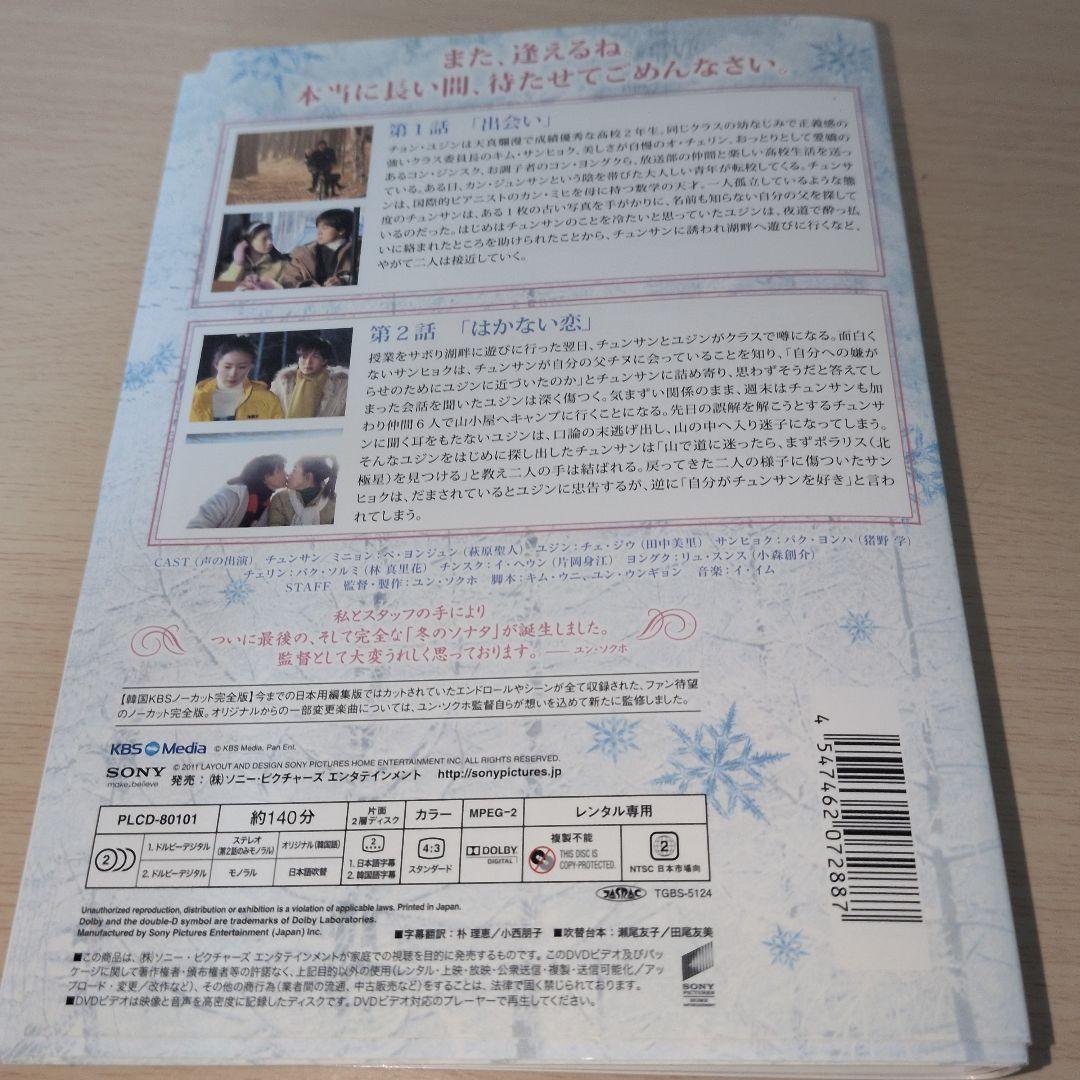 また、逢えるね。
本当に長い間、待たせてごめんなさい。
第1話 「出会い」
チョン・ユジンは天真爛漫で成績優秀な高校2年生。同じクラスの幼なじみで正義感の
強いクラス委員長のキム・サンヒョク、美しさが自慢のオ・チェリン、おっとりとして愛嬌の
あるコン・ジンスク、お調子者のコン・ヨングクら、放送部の仲間と楽しい高校生活を送っ
ている。ある日、カン・ジュンサンという陰を帯びた大人しい青年が転校してくる。チュンサ
ンは、国際的ピアニストのカン・ミヒを母に持つ数学の天才。一人孤立しているような態
度のチュンサンは、ある1枚の古い写真を手がかりに、名前も知らない自分の父を探して
いるのだった。はじめはチュンサンのことを冷たいと思っていたユジンは、夜道で酔っ払
いに絡まれたところを助けられたことから、チュンサンに誘われ湖畔へ遊びに行くなど、
やがて二人は接近していく。
第2話 「はかない恋」
授業をサボり湖畔に遊びに行った翌日、チュンサンとユジンがクラスで噂になる。面白く
ないサンヒョクは、チュンサンが自分の父チヌに会っていることを知り、「自分への嫌が
らせのためにユジンに近づいたのか」とチュンサンに詰め寄り、思わずそうだと答えてし
まった会話を聞いたユジンは深く傷つく。気まずい関係のまま、週末はチュンサンも加
わり仲間6人で山小屋へキャンプに行くことになる。先日の誤解を解こうとするチュンサ
ンに聞く耳をもたないユジンは、口論の末逃げ出し、山の中へ入り迷子になってしまう。
そんなユジンをはじめに探し出したチュンサンは「山で道に迷ったら、まずポラリス(北
極星)を見つける」と教え二人の手は結ばれる。戻ってきた二人の様子に傷ついたサン
ヒョクは、だまされているとユジンに忠告するが、逆に「自分がチュンサンを好き」と言わ
れてしまう。
CAST (声の出演) チュンサン/ミニョン:ペ・ヨンジュン(萩原聖人) ユジン:チェ・ジウ(田中美里) サンヒョク:パク・ヨンハ(猪野 学)
チェリン:パク・ソルミ(林 真里花) チンスク:イ・ヘウン(片岡身江) ヨングク:リュ・スンス(小森創介)
STAFF 監督・製作:ユン・ソクホ 脚本:キム・ウニ、ユン・ウンギョン 音楽:イ・イム
私とスタッフの手により
ついに最後の、そして完全な「冬のソナタ」が誕生しました。
監督として大変うれしく思っております。 ── ユン・ソクホ
【韓国KBSノーカット完全版】今までの日本用編集版ではカットされていたエンドロールやシーンが全て収録された、ファン待望
のノーカット完全版。オリジナルからの一部変更楽曲については、ユン・ソクホ監督自らが想いを込めて新たに監修しました。
KBS Media © KBS Media, Pan Ent.
SONY make.believe © 2011 LAYOUT AND DESIGN SONY PICTURES HOME ENTERTAINMENT INC. ALL RIGHTS RESERVED.
発売:(株)ソニー・ピクチャーズ エンタテインメント http://sonypictures.jp
PLCD-80101 約140分 片面2層ディスク カラー MPEG-2 レンタル専用
2 1. ドルビーデジタル ステレオ(第2話のみモノラル) オリジナル(韓国語)
2. ドルビーデジタル モノラル 日本語吹替
2 1. 日本語字幕 2. 韓国語字幕
4:3 スタンダード
DOLBY DIGITAL
複製不能 THIS DISC IS COPY-PROTECTED.
2 NTSC 日本市場向
JASRAC TGBS-5124
4 547462 072887
Unauthorized reproduction, distribution or exhibition is a violation of applicable laws. Printed in Japan.
Dolby and the double-D symbol are trademarks of Dolby Laboratories.
Manufactured by Sony Pictures Entertainment (Japan) Inc.
■字幕翻訳:朴 理恵/小西朋子 ■吹替台本:瀬尾友子/田尾友美
■この商品は、(株)ソニー・ピクチャーズ エンタテインメントが家庭での視聴を目的に発売するものです。このDVDビデオ及びパッ
ケージに関して著作権者・頒布権者等の許諾なく、上記目的以外の使用(レンタル・上映・放映・公衆送信・複製・送信可能化/アッ
プロード・変更/改作など)、その他の商行為(業者間の流通、中古販売など)をすることは、法律で固く禁じられております。
■DVDビデオは映像と音声を高密度に記録したディスクです。DVDビデオ対応のプレーヤーで再生してください。
SONY
PICTURES
HOME
ENTERTAINMENT